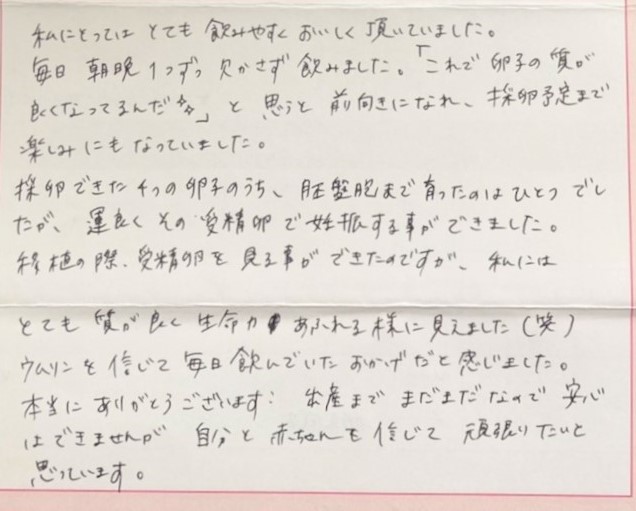 私にとっては とても 飲みやすく おいしく 頂いていました。
毎日 朝晩 1つずつ 欠かさず 飲みました。「これで 卵子の 質が
良くなってるんだ✨」と 思うと 前向きになれ、採卵予定まで
楽しみにも なっていました。
採卵できた 4つの 卵子のうち、胚盤胞まで 育ったのは ひとつ でし
たが、運良く その 受精卵 で 妊娠する事が できました。
移植の際、受精卵を 見る事が できたのですが、私には
とても 質が良く 生命力 あふれる様に 見えました(笑)
ウムリンを 信じて 毎日 飲んでいた おかげだと 感じました。
本当に ありがとうございます! 出産まで まだまだなので 安心
はできませんが 自分と 赤ちゃんを 信じて 頑張りたいと
思っています。